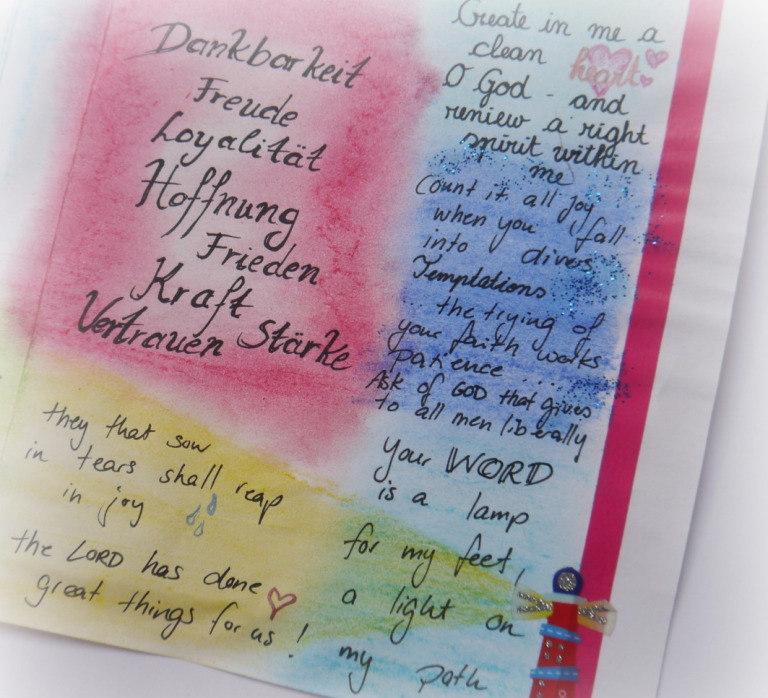 Dankbarkeit
Freude
Loyalität
Hoffnung
Frieden
Kraft
Vertrauen Stärke
they that sow
in tears shall reap
in joy
the LORD has done
great things for us!
Create in me a
clean heart
O God - and
reniew a right
spirit within
me
Count it all joy
when you fall
into divers
Temptations
the trying of
your faith works
patience ....
Ask of GOD that gives
to all men liberally
your WORD
is a lamp
for my feet,
a light on
my path